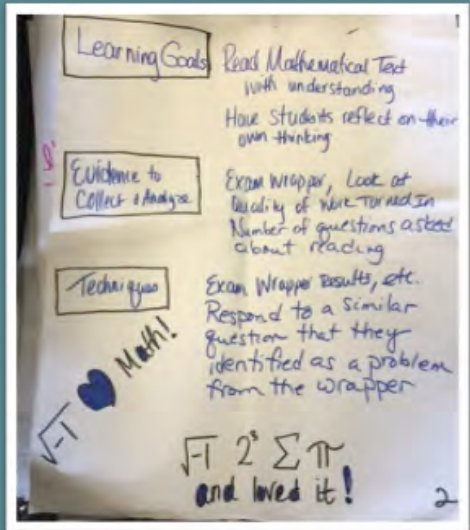 Learning Goals
Read Mathematical Text
with understanding
Have students reflect on their
own thinking
Evidence to
Collect & Analyze
Exam Wrapper, Look at
Quality of Work Turned In
Number of questions asked
about reading
Techniques
Exam Wrapper results, etc.
Respond to a similar
question that they
identified as a problem
from the wrapper
√-1 ♥ Math!
√-1 2³ Σ π
and loved it!
2